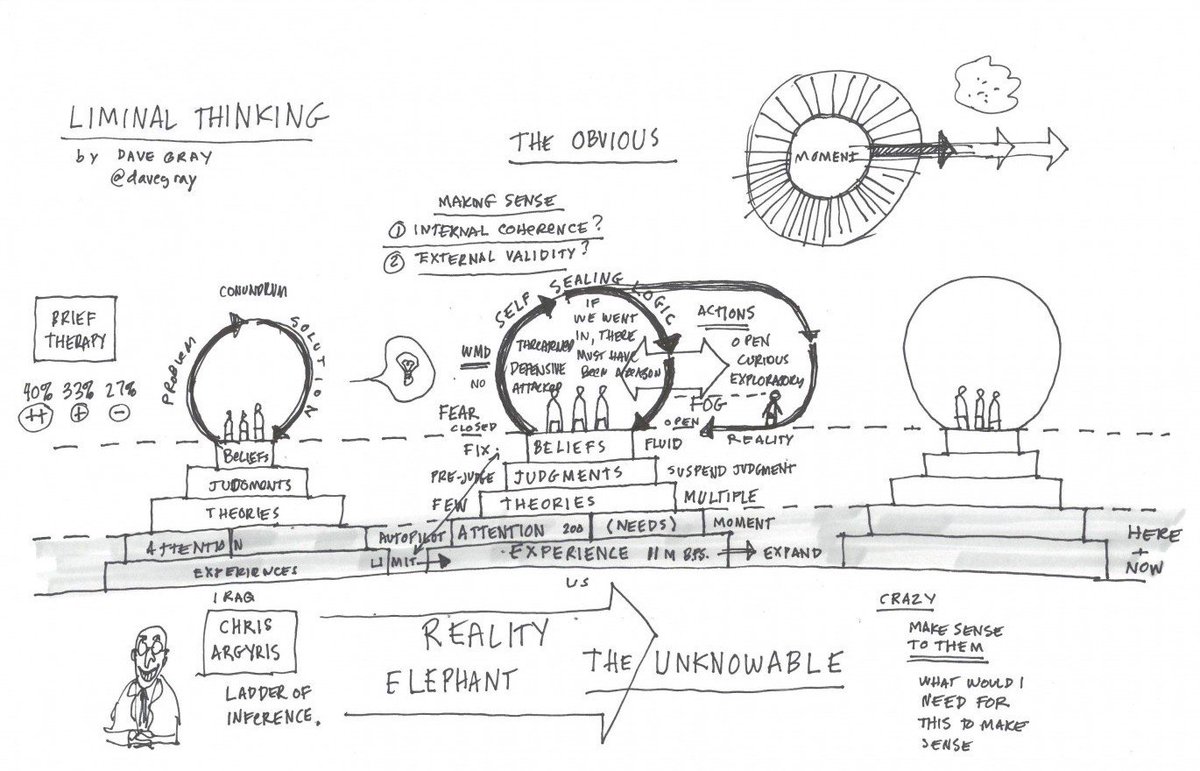 LIMINAL THINKING
by DAVE GRAY
@davegray
THE OBVIOUS
MOMENT
MAKING SENSE
① INTERNAL COHERENCE?
② EXTERNAL VALIDITY?
BRIEF
THERAPY
40% 33% 27%
++ + −
CONUNDRUM
PROBLEM
SOLUTION
BELIEFS
JUDGMENTS
THEORIES
ATTENTION
EXPERIENCES
SELF SEALING LOGIC
WMD
NO
THREATENED
DEFENSIVE
ATTACKED
IF
WE WENT
IN, THERE
MUST HAVE
BEEN A REASON
ACTIONS
OPEN
CURIOUS
EXPLORATORY
FOG
OPEN
REALITY
FEAR
CLOSED
FIX
PRE-JUDGE
FEW
AUTOPILOT
LIMIT
BELIEFS
JUDGMENTS
THEORIES
ATTENTION 200 (NEEDS)
EXPERIENCE 11 M BPS.
FLUID
SUSPEND JUDGMENT
MULTIPLE
MOMENT
EXPAND
US
HERE
+
NOW
IRAQ
CHRIS
ARGYRIS
LADDER OF
INFERENCE.
REALITY
ELEPHANT
THE UNKNOWABLE
CRAZY
MAKE SENSE
TO THEM
WHAT WOULD I
NEED FOR
THIS TO MAKE
SENSE